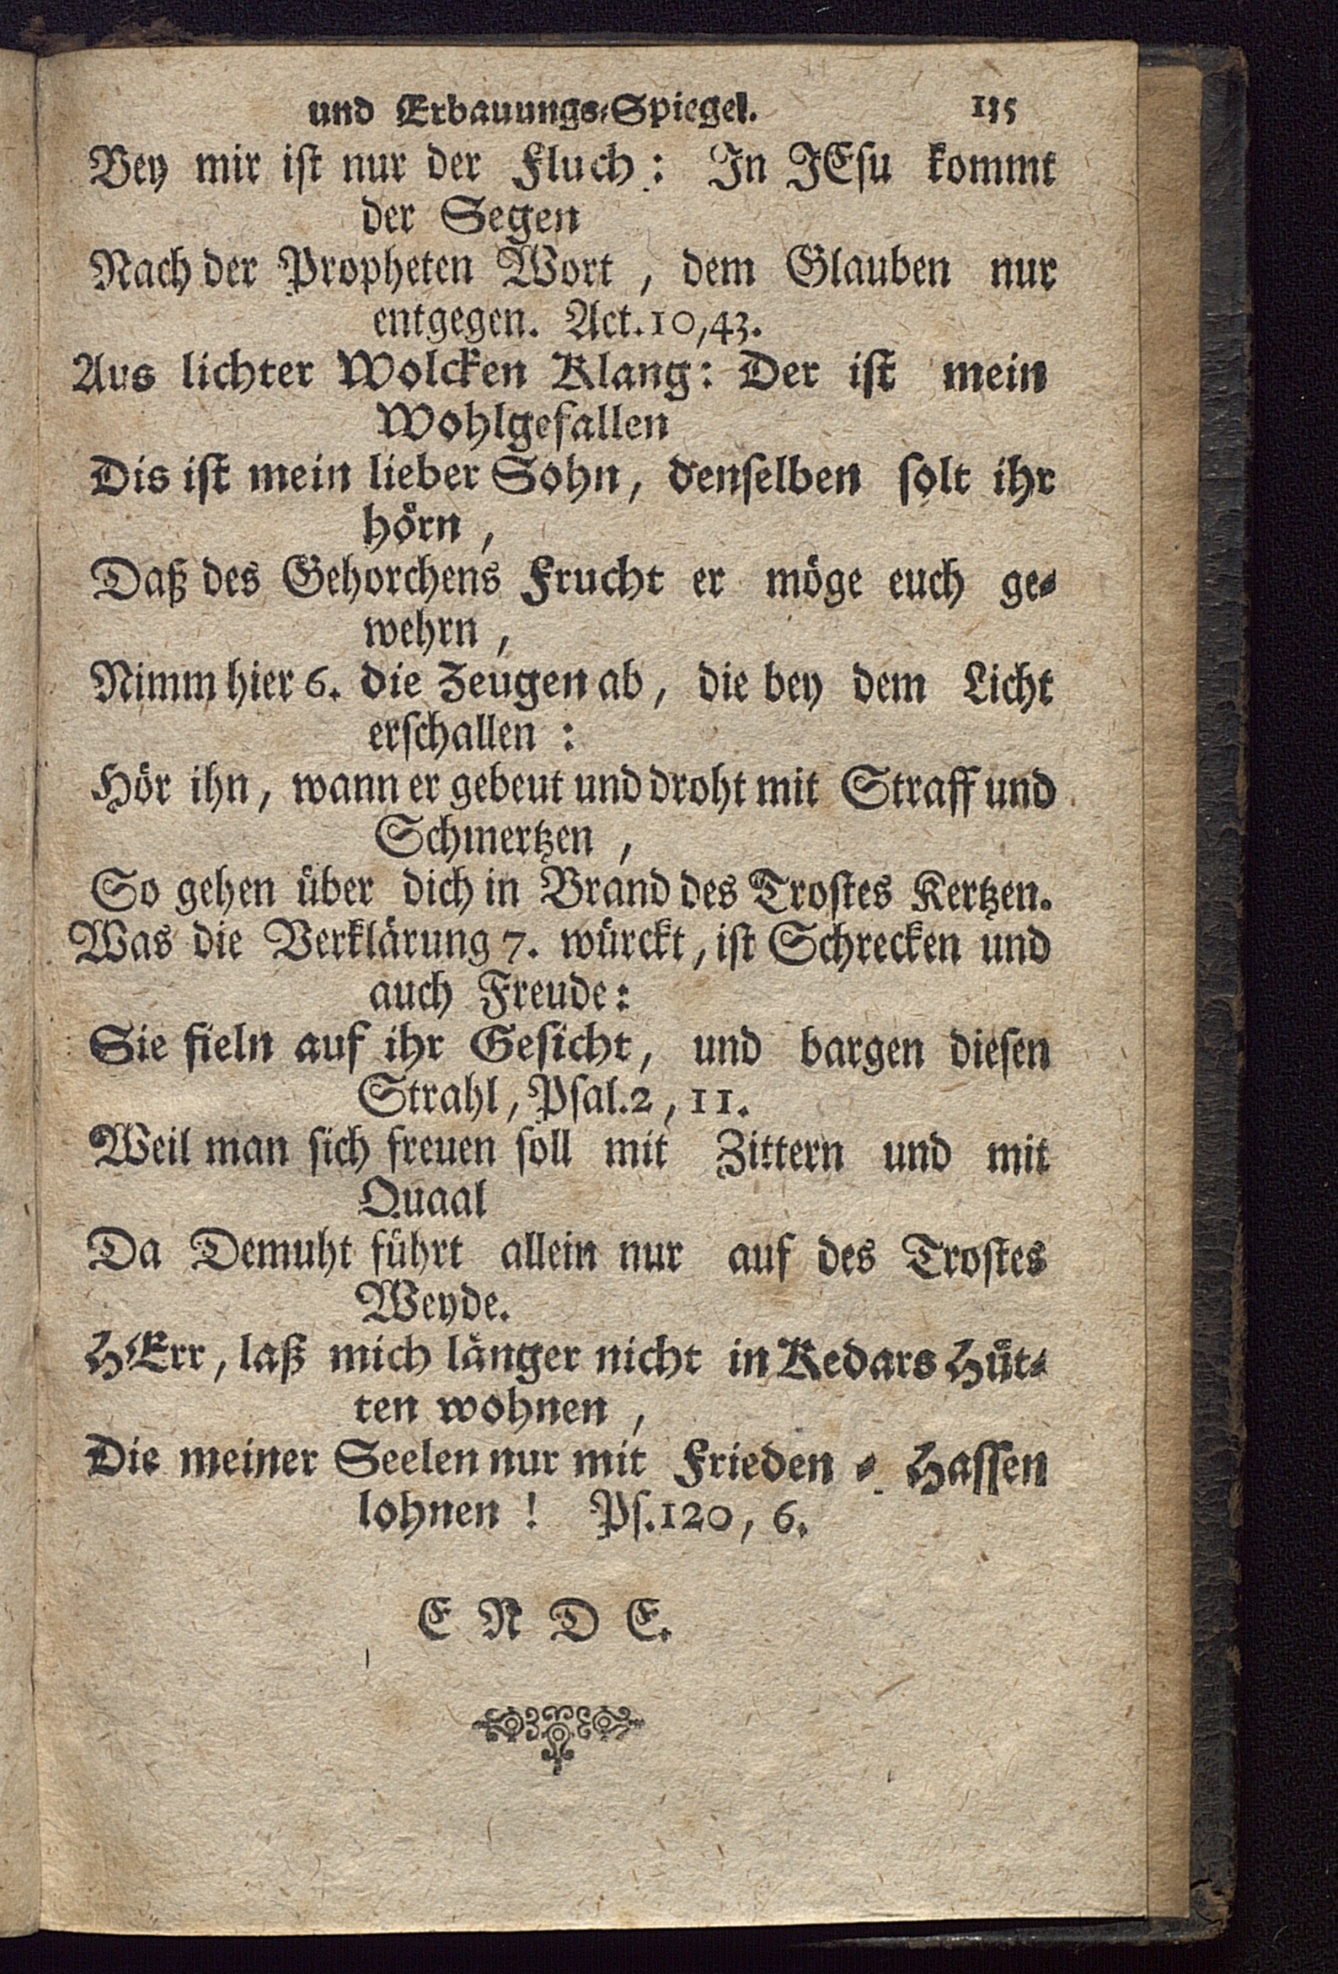 und Erbauungs-Spiegel. 135
Bey mir ist nur der Fluch: In JEsu kommt
der Segen
Nach der Propheten Wort, dem Glauben nur
entgegen. Act. 10, 43.
Aus lichter Wolcken Klang: Der ist mein
Wohlgefallen
Dis ist mein lieber Sohn, denselben solt ihr
hörn,
Daß des Gehorchens Frucht er möge euch ge-
wehrn,
Nimm hier 6. die Zeugen ab, die bey dem Licht
erschallen:
Hör ihn, wann er gebeut und droht mit Straff und
Schmertzen,
So gehen über dich in Brand des Trostes Kertzen.
Was die Verklärung 7. würckt, ist Schrecken und
auch Freude:
Sie fieln auf ihr Gesicht, und bargen diesen
Strahl, Psal. 2, 11.
Weil man sich freuen soll mit Zittern und mit
Quaal
Da Demuht führt allein nur auf des Trostes
Weyde.
HErr, laß mich länger nicht in Kedars Hüt-
ten wohnen,
Die meiner Seelen nur mit Frieden-Hassen
lohnen! Ps. 120, 6.
ENDE.